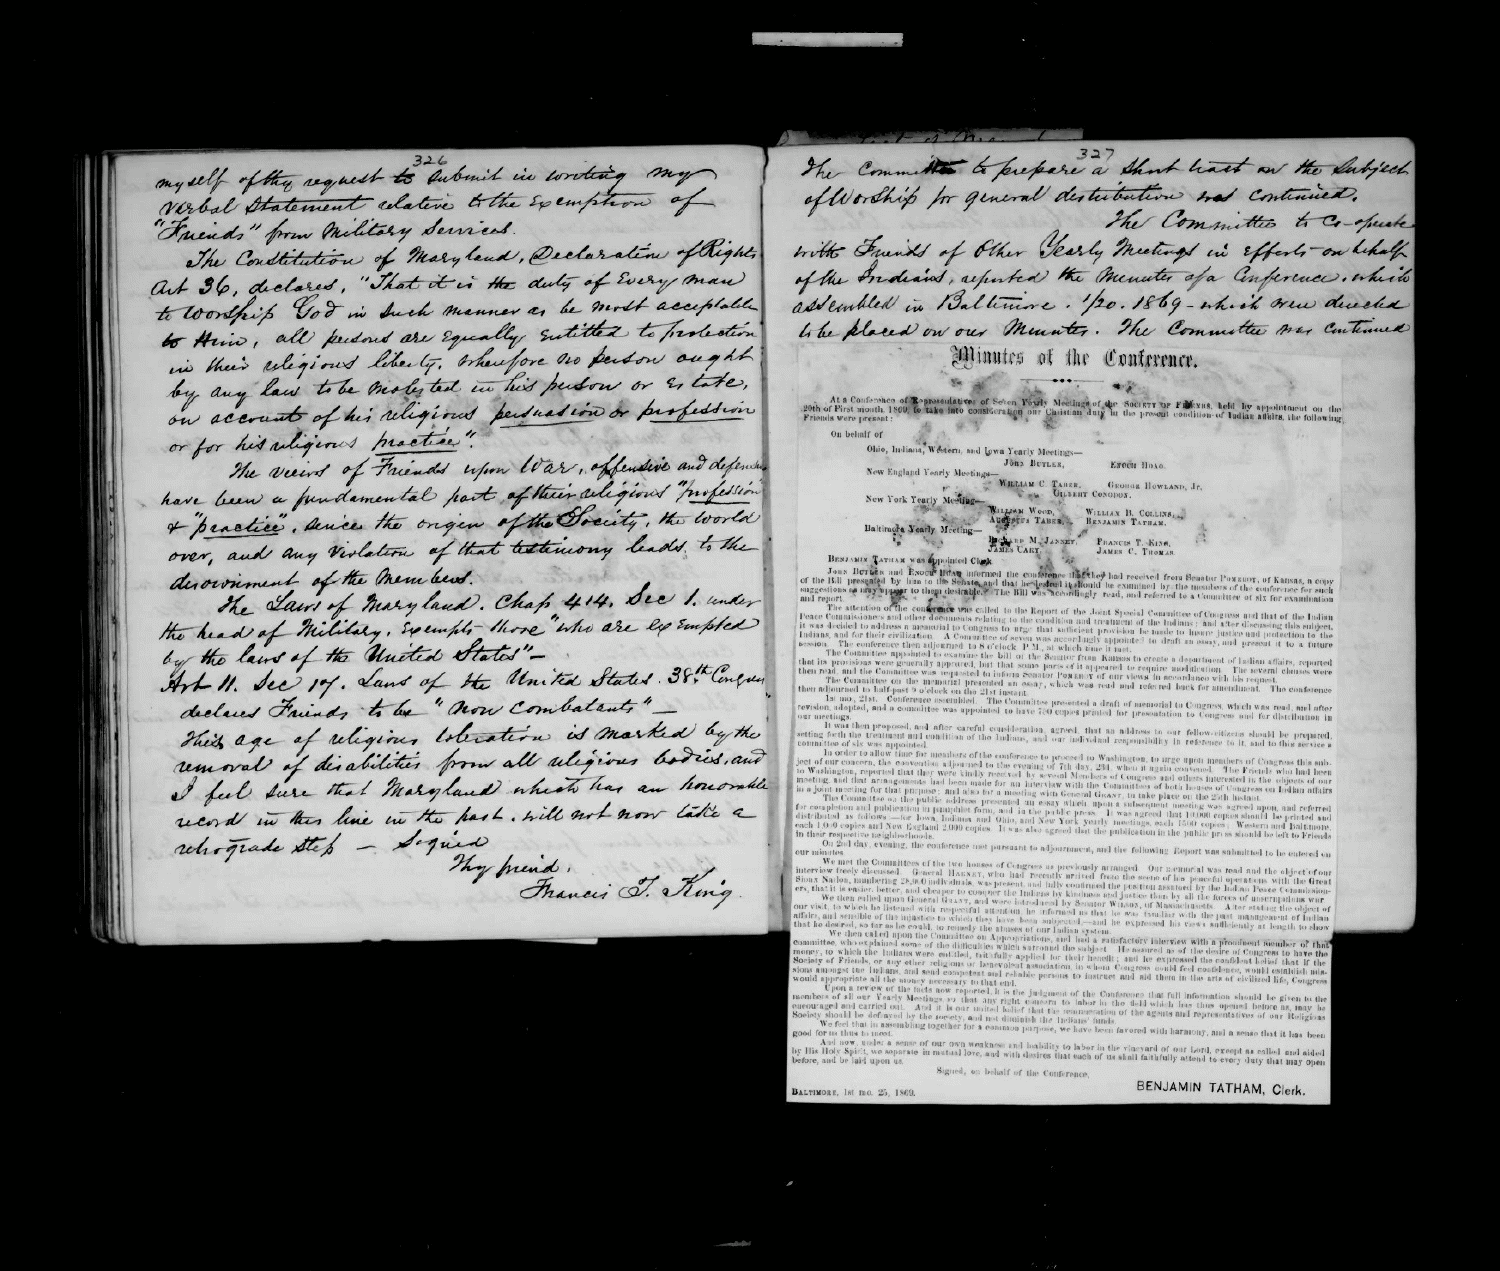 326
myself of thy request to submit in writing my
verbal Statement relative to the Exemption of
"Friends" from Military Services.
The Constitution of Maryland, Declaration of Rights
Art 36, declares, "That it is the duty of Every man
to Worship God in such manner as he most acceptable
to Him, all persons are Equally Entitled to protection
in their religious liberty, wherefore no person ought
by any law to be molested in his person or Estate,
on account of his religious persuasion or profession
or for his religious practice".
The views of Friends upon War, offensive and defensive
have been a fundamental part of their religious "profession"
& "practice", since the origin of the Society, the world
over, and any violation of that testimony leads to the
disownment of the Members.
The Laws of Maryland. Chap 414. Sec 1. under
the head of Military, Exempts those "who are exempted
by the laws of the United States"—
Art 11. Sec 17. Laws of the United States. 38th Congress
declares Friends to be "Non Combatants"—
This age of religious toleration is marked by the
removal of disabilities from all religious bodies, and
I feel sure that Maryland which has an honorable
record in this line in the past, will not now take a
retrograde step — Signed
Thy friend,
Francis T. King.
327
The Committee to prepare a short tract on the Subject
of Worship for general distribution was continued.
The Committee to Co-operate
with Friends of Other Yearly Meetings in Efforts on behalf
of the Indians, reported the Minutes of a Conference, which
assembled in Baltimore. 1/20. 1869 - which were directed
to be placed on our Minutes. The Committee was continued
Minutes of the Conference.
At a Conference of Representatives of Seven Yearly Meetings of the SOCIETY OF FRIENDS, held by appointment on the
20th of First month, 1869, to take into consideration our Christian duty in the present condition of Indian affairs, the following
Friends were present:
On behalf of
Ohio, Indiana, Western, and Iowa Yearly Meetings—
JOHN BUTLER, ENOCH HOAG.
New England Yearly Meetings—
WILLIAM C. TABER, GEORGE HOWLAND, Jr.
GILBERT CONGDON.
New York Yearly Meeting—
WILLIAM WOOD, WILLIAM B. COLLINS,
AUGUSTUS TABER, BENJAMIN TATHAM.
Baltimore Yearly Meeting—
RICHARD M. JANNEY, FRANCIS T. KING,
JAMES CARY, JAMES C. THOMAS.
BENJAMIN TATHAM was appointed Clerk
JOHN BUTLER and ENOCH HOAG informed the conference that they had received from Senator POMEROY, of Kansas, a copy
of the Bill presented by him to the Senate, and that he desired it should be examined by the members of the conference for such
suggestions as may appear to them desirable. The Bill was accordingly read, and referred to a Committee of six for examination
and report.
The attention of the conference was called to the Report of the Joint Special Committee of Congress and that of the Indian
Peace Commissioners and other documents relating to the condition and treatment of the Indians; and after discussing this subject,
it was decided to address a memorial to Congress to urge that sufficient provision be made to insure justice and protection to the
Indians, and for their civilization. A Committee of seven was accordingly appointed to draft an essay, and present it to a future
session. The conference then adjourned to 8 o'clock P.M., at which time it met.
The Committee appointed to examine the bill of the Senator from Kansas to create a department of Indian affairs, reported
that its provisions were generally approved, but that some parts of it appeared to require modification. The several clauses were
then read, and the Committee was requested to inform Senator POMEROY of our views in accordance with his request.
The Committee on the memorial presented an essay, which was read and referred back for amendment. The conference
then adjourned to half-past 9 o'clock on the 21st instant.
1st mo., 21st. Conference assembled. The Committee presented a draft of memorial to Congress, which was read, and after
revision, adopted, and a committee was appointed to have 750 copies printed for presentation to Congress and for distribution in
our meetings.
It was then proposed, and after careful consideration, agreed, that an address to our fellow-citizens should be prepared,
setting forth the treatment and condition of the Indians, and our individual responsibility in reference to it, and to this service a
committee of six was appointed.
In order to allow time for members of the conference to proceed to Washington, to urge upon members of Congress this sub-
ject of our concern, the convention adjourned to evening of 7th day, 23d, when it again convened. The Friends who had been
to Washington, reported that they were kindly received by several Members of Congress and others interested in the objects of our
meeting, and that arrangements had been made for an interview with the Committees of both houses of Congress on Indian affairs
in a joint meeting for that purpose; and also for a meeting with General GRANT, to take place on the 25th instant.
The Committee on the public address presented an essay which upon a subsequent meeting was agreed upon, and referred
for completion and publication in pamphlet form, and in the public press. It was agreed that 10,000 copies should be printed and
distributed as follows:—for Iowa, Indiana and Ohio, and New York yearly meetings, each 1500 copies; Western and Baltimore,
each 1,000 copies and New England 2,000 copies. It was also agreed that the publication in the public press should be left to Friends
in their respective neighborhoods.
On 2nd day, evening, the conference met pursuant to adjournment, and the following Report was submitted to be entered on
our minutes
We met the Committees of the two houses of Congress as previously arranged. Our memorial was read and the object of our
interview freely discussed. General HARNEY, who had recently arrived from the scene of his peaceful operations with the Great
Sioux Nation, numbering 28,000 individuals, was present, and fully confirmed the position assumed by the Indian Peace Commission-
ers, that it is easier, better, and cheaper to conquer the Indians by kindness and justice than by all the forces of unrighteous war
We then called upon General GRANT, and were introduced by Senator WILSON, of Massachusetts. After stating the object of
our visit, to which he listened with respectful attention, he informed us that he was familiar with the past management of Indian
affairs, and sensible of the injustice to which they have been subjected,—and he expressed his views sufficiently at length to show
that he desired, so far as he could, to remedy the abuses of our Indian system.
We then called upon the Committee on Appropriations, and had a satisfactory interview with a prominent member of that
committee, who explained some of the difficulties which surround the subject. He assured us of the desire of Congress to have the
money, to which the Indians were entitled, faithfully applied for their benefit; and he expressed the confident belief that if the
Society of Friends, or any other religious or benevolent association, in whom Congress could feel confidence, would establish mis-
sions amongst the Indians, and send competent and reliable persons to instruct and aid them in the arts of civilized life, Congress
would appropriate all the money necessary to that end.
Upon a review of the facts now reported, it is the judgment of the Conference that full information should be given to the
members of all our Yearly Meetings, so that any right concern to labor in the field which has thus opened before us, may be
encouraged and carried out. And it is our united belief that the remuneration of the agents and representatives of our Religious
Society should be defrayed by the society, and not diminish the Indians' funds.
We feel that in assembling together for a common purpose, we have been favored with harmony, and a sense that it has been
good for us thus to meet.
And now, under a sense of our own weakness and inability to labor in the vineyard of our Lord, except as called and aided
by His Holy Spirit, we separate in mutual love, and with desires that each of us shall faithfully attend to every duty that may open
before, and be laid upon us.
Signed, on behalf of the Conference,
BENJAMIN TATHAM, Clerk.
BALTIMORE, 1st mo. 25, 1869.